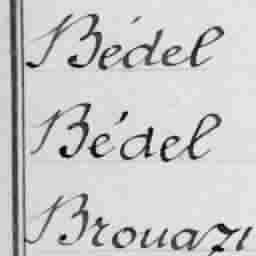 Bédel
Bédel
Brouazi